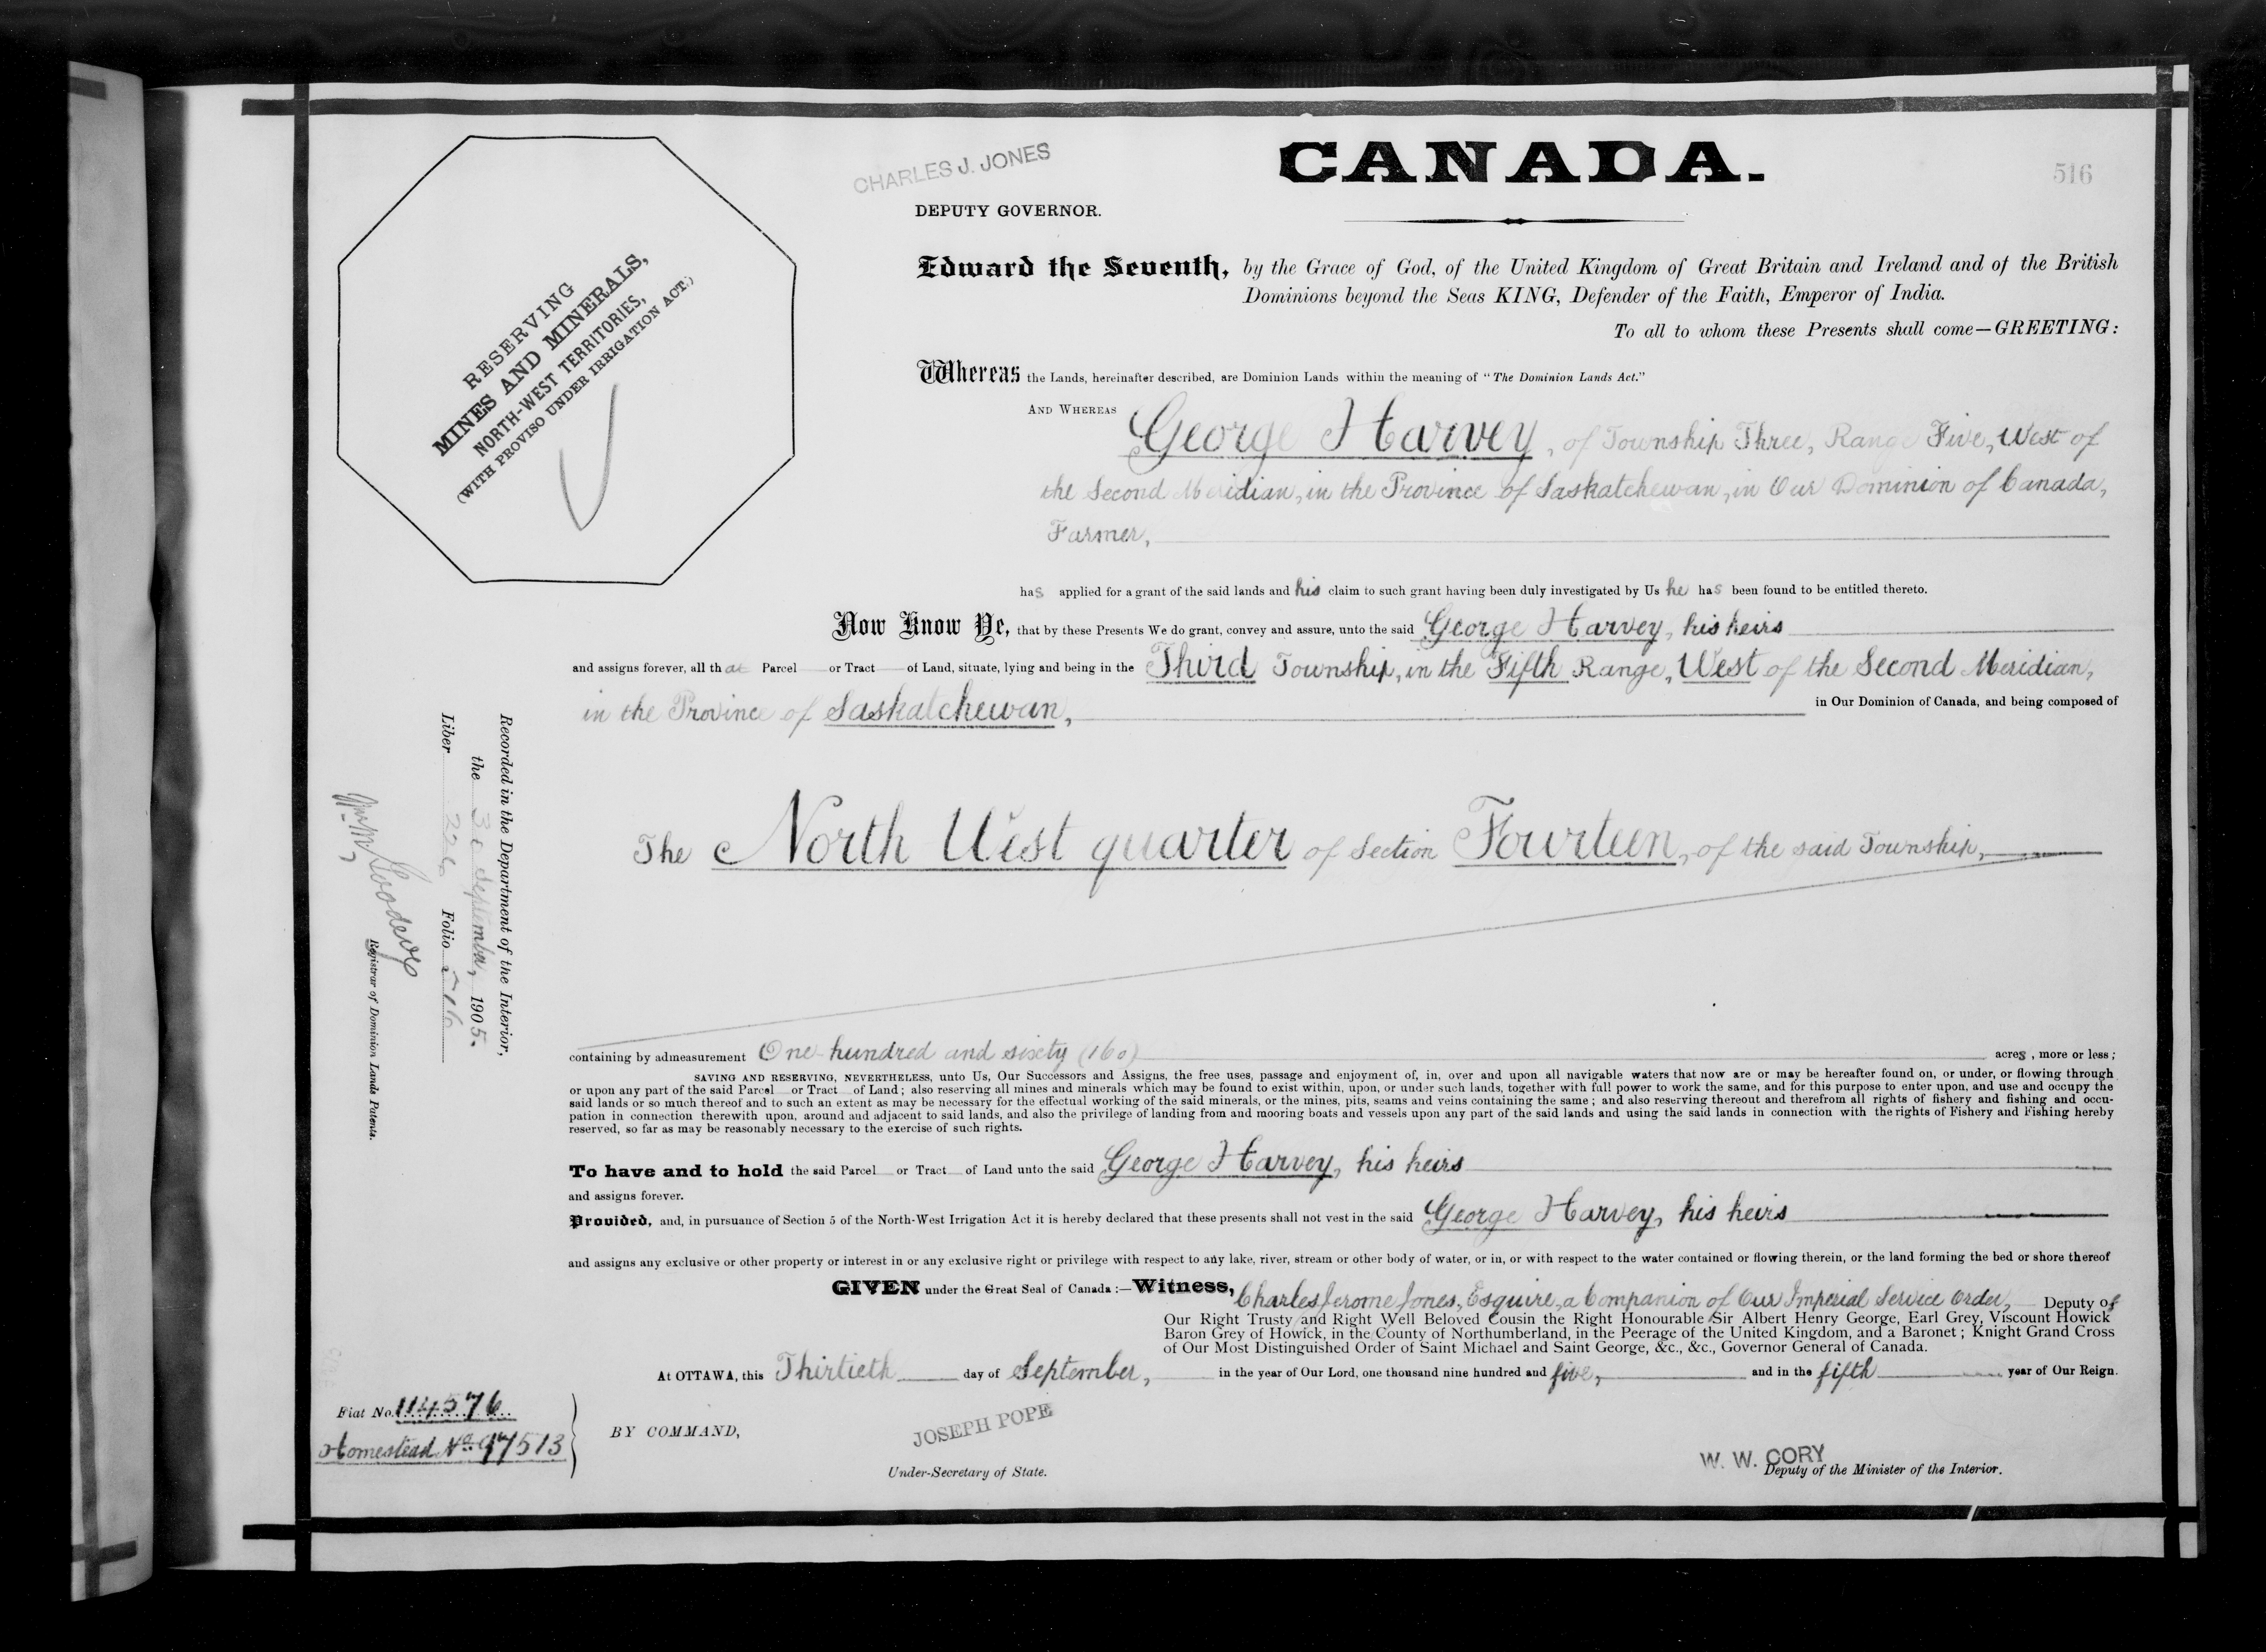 CHARLES J. JONES
CANADA.
516
DEPUTY GOVERNOR.
RESERVING
MINES AND MINERALS,
NORTH-WEST TERRITORIES,
(WITH PROVISO UNDER IRRIGATION ACT.)
Edward the Seventh, by the Grace of God, of the United Kingdom of Great Britain and Ireland and of the British
Dominions beyond the Seas KING, Defender of the Faith, Emperor of India.
To all to whom these Presents shall come—GREETING:
Whereas the Lands, hereinafter described, are Dominion Lands within the meaning of "The Dominion Lands Act."
AND WHEREAS George Harvey, of Township Three, Range Five, West of
the Second Meridian, in the Province of Saskatchewan, in Our Dominion of Canada,
Farmer,
has applied for a grant of the said lands and his claim to such grant having been duly investigated by Us he has been found to be entitled thereto.
Now Know Ye, that by these Presents We do grant, convey and assure, unto the said George Harvey, his heirs
and assigns forever, all that Parcel or Tract of Land, situate, lying and being in the Third Township, in the Fifth Range, West of the Second Meridian,
in the Province of Saskatchewan, in Our Dominion of Canada, and being composed of
The North West quarter of Section Fourteen, of the said Township,
containing by admeasurement One hundred and sixty (160) acres, more or less;
SAVING AND RESERVING, NEVERTHELESS, unto Us, Our Successors and Assigns, the free uses, passage and enjoyment of, in, over and upon all navigable waters that now are or may be hereafter found on, or under, or flowing through
or upon any part of the said Parcel or Tract of Land; also reserving all mines and minerals which may be found to exist within, upon, or under such lands, together with full power to work the same, and for this purpose to enter upon, and use and occupy the
said lands or so much thereof and to such an extent as may be necessary for the effectual working of the said minerals, or the mines, pits, seams and veins containing the same; and also reserving thereout and therefrom all rights of fishery and fishing and occu-
pation in connection therewith upon, around and adjacent to said lands, and also the privilege of landing from and mooring boats and vessels upon any part of the said lands and using the said lands in connection with the rights of Fishery and Fishing hereby
reserved, so far as may be reasonably necessary to the exercise of such rights.
To have and to hold the said Parcel or Tract of Land unto the said George Harvey, his heirs
and assigns forever.
Provided, and, in pursuance of Section 5 of the North-West Irrigation Act it is hereby declared that these presents shall not vest in the said George Harvey, his heirs
and assigns any exclusive or other property or interest in or any exclusive right or privilege with respect to any lake, river, stream or other body of water, or in, or with respect to the water contained or flowing therein, or the land forming the bed or shore thereof
GIVEN under the Great Seal of Canada:—Witness, Charles Jerome Jones, Esquire, a Companion of Our Imperial Service Order, Deputy of
Our Right Trusty and Right Well Beloved Cousin the Right Honourable Sir Albert Henry George, Earl Grey, Viscount Howick
Baron Grey of Howick, in the County of Northumberland, in the Peerage of the United Kingdom, and a Baronet; Knight Grand Cross
of Our Most Distinguished Order of Saint Michael and Saint George, &c., &c., Governor General of Canada.
At OTTAWA, this Thirtieth day of September, in the year of Our Lord, one thousand nine hundred and five, and in the fifth year of Our Reign.
Fiat No. 114576
Homestead No. 97513
BY COMMAND,
JOSEPH POPE
Under-Secretary of State.
W. W. CORY
Deputy of the Minister of the Interior.
Recorded in the Department of the Interior,
the 30 September, 1905.
Liber 226 Folio 516
Registrar of Dominion Lands Patents.